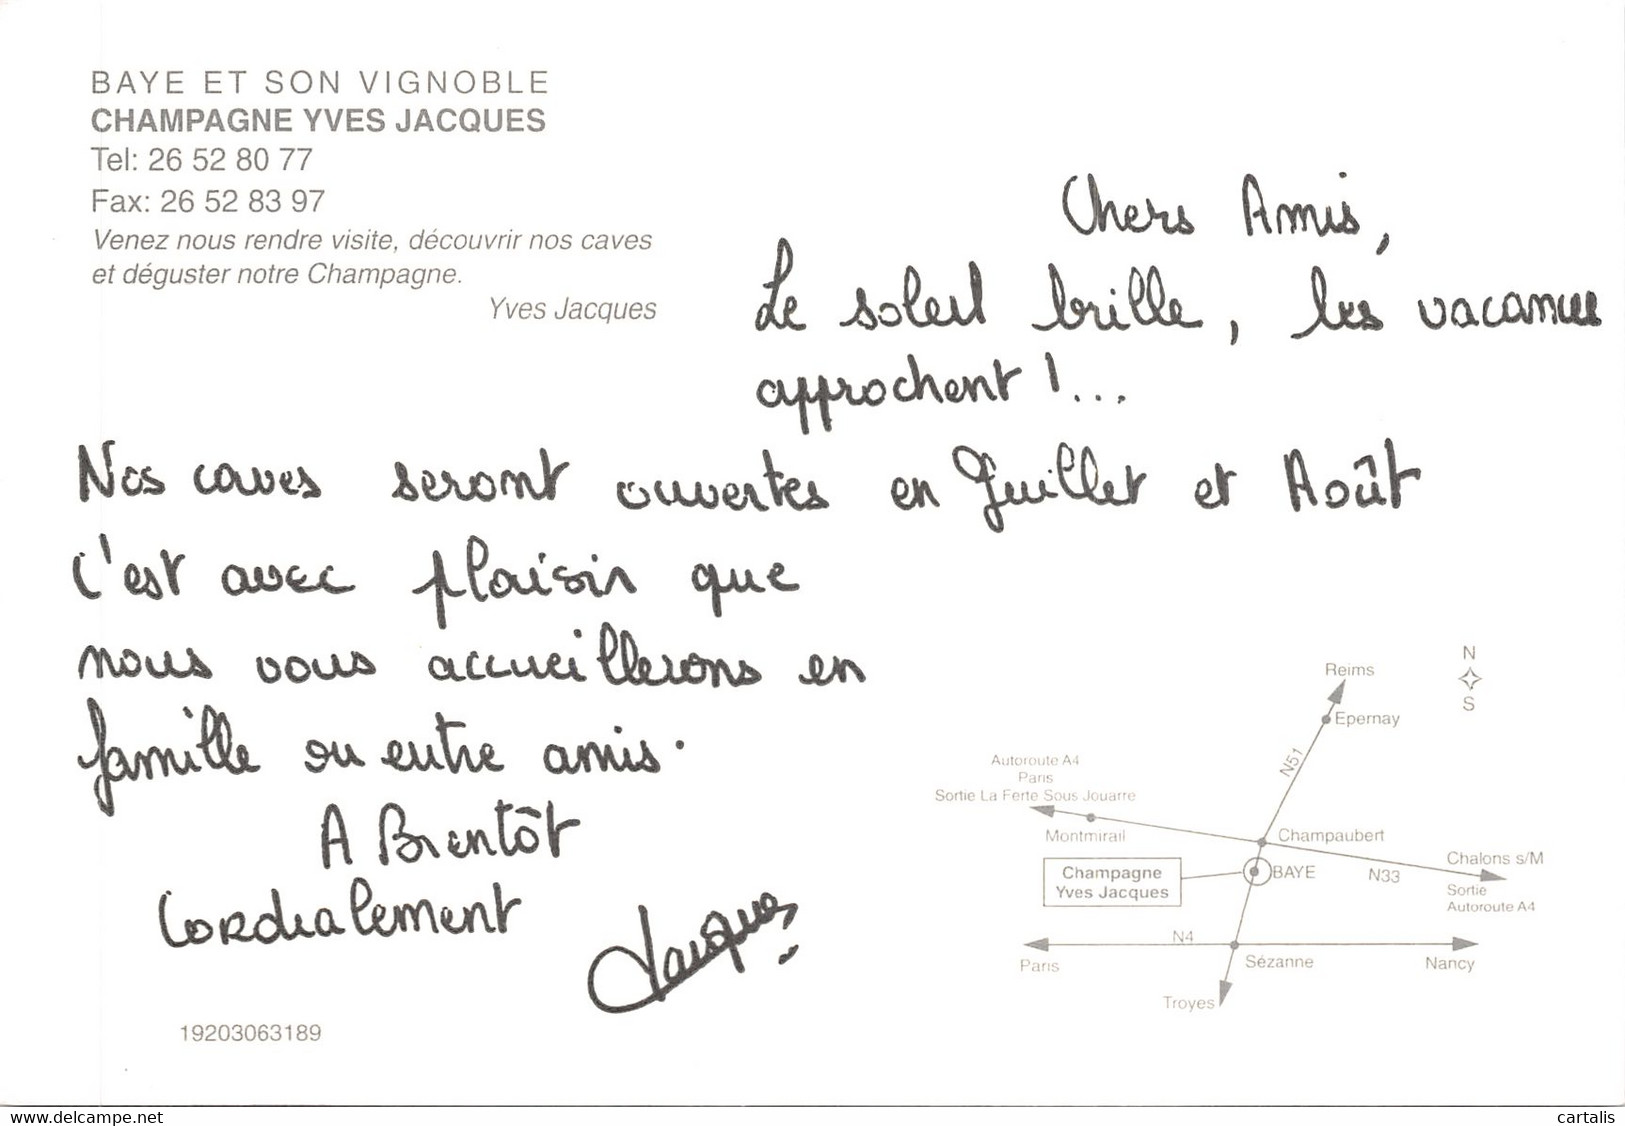 BAYE ET SON VIGNOBLE
CHAMPAGNE YVES JACQUES
Tel: 26 52 80 77
Fax: 26 52 83 97
Venez nous rendre visite, découvrir nos caves
et déguster notre Champagne.
Yves Jacques
Chers Amis,
Le soleil brille, les vacances
approchent !...
Nos caves seront ouvertes en Juillet et Août
C'est avec plaisir que
nous vous accueillerons en
famille ou entre amis.
A Bientôt
Cordialement
Jacques
19203063189
N
S
Reims
Epernay
N51
Autoroute A4
Paris
Sortie La Ferte Sous Jouarre
Montmirail
Champaubert
Chalons s/M
Champagne
Yves Jacques
BAYE
N33
Sortie
Autoroute A4
N4
Paris
Sézanne
Nancy
Troyes
www.delcampe.net
cartalis